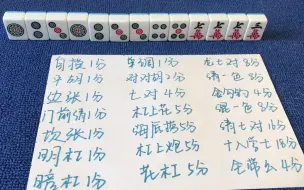 自摸1分 单调1分 龙七对8分
平胡1分 对对胡2分 清一色8分
边张1分 七对4分 金钩钓4分
门前清1分 杠上花5分 混一色8分
坎张1分 海底捞5分 清七对16分
明杠1分 杠上炮5分 十八学士18分
暗杠1分 花杠5分